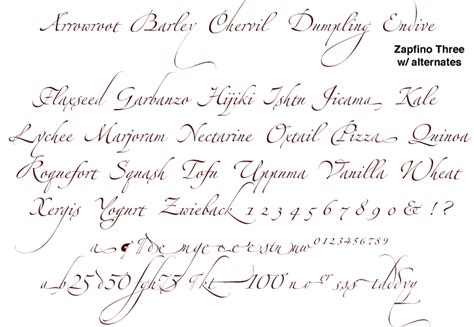 Arrowroot Barley Chervil Dumpling Endive
Zapfino Three
w/ alternates
Flaxseed Garbanzo Hijiki Ishtu Jicama Kale
Lychee Marjoram Nectarine Oxtail Pizza Quinoa
Roquefort Squash Tofu Uppuma Vanilla Wheat
Xergis Yogurt Zwieback 1 2 3 4 5 6 7 8 9 0 & ! ?
0123456789
100